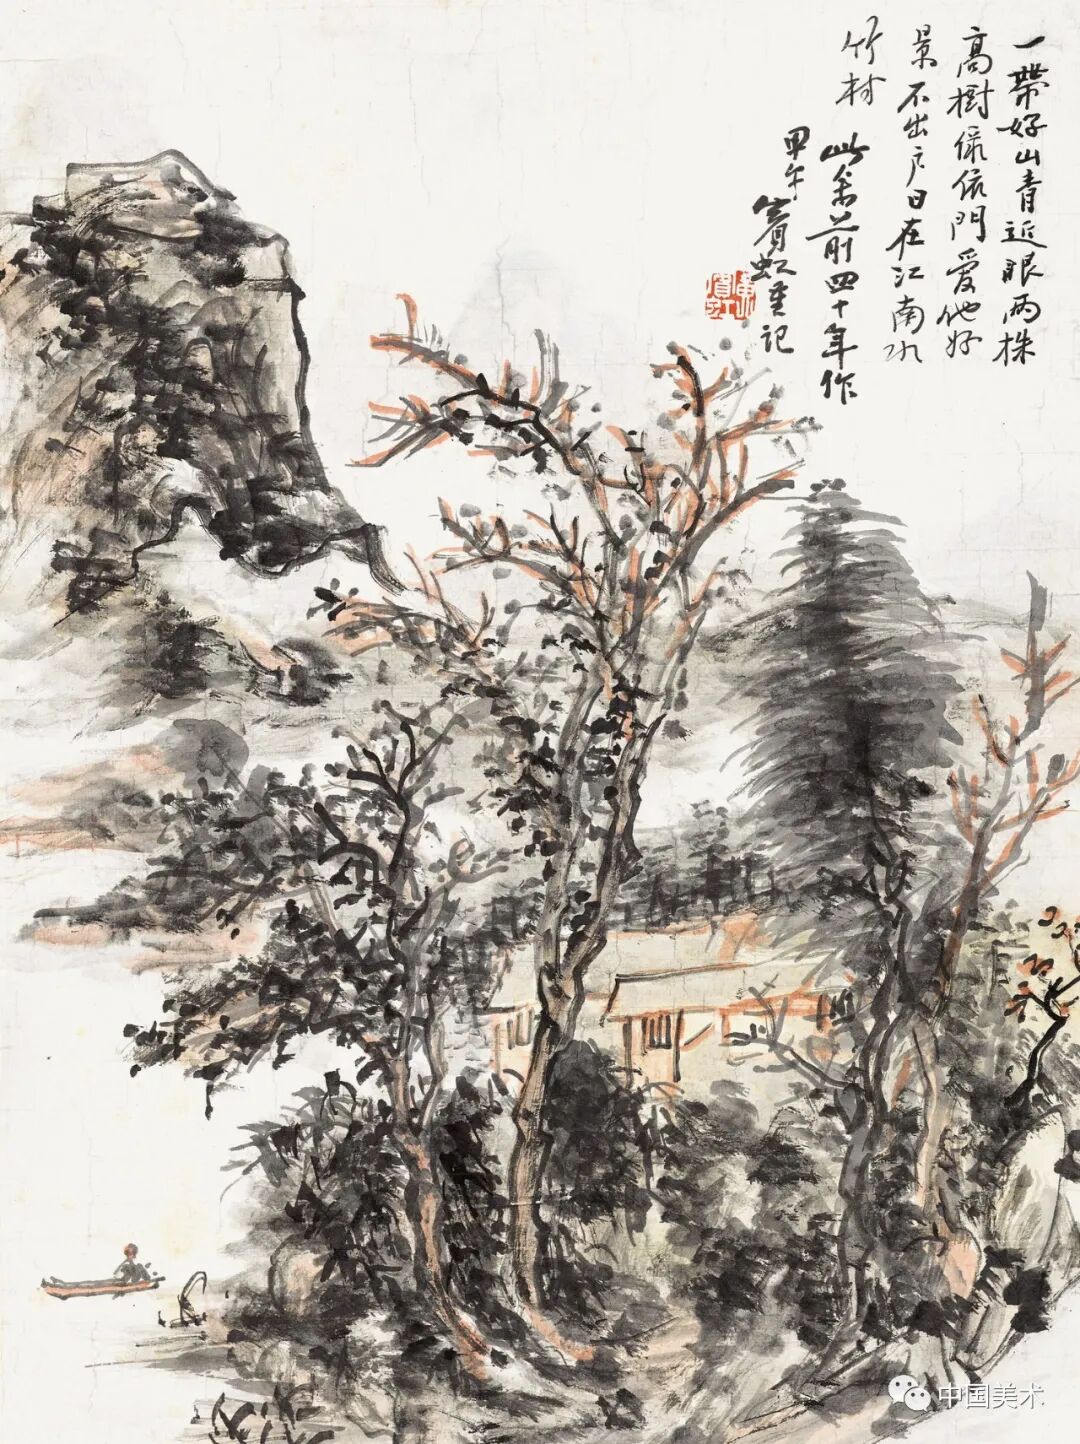 一帶好山青近眼兩株
高樹綠依門愛他好
景不出戶日在江南水
竹村
此余前四十年作
甲午賓虹重記
黄賓虹
中国美术